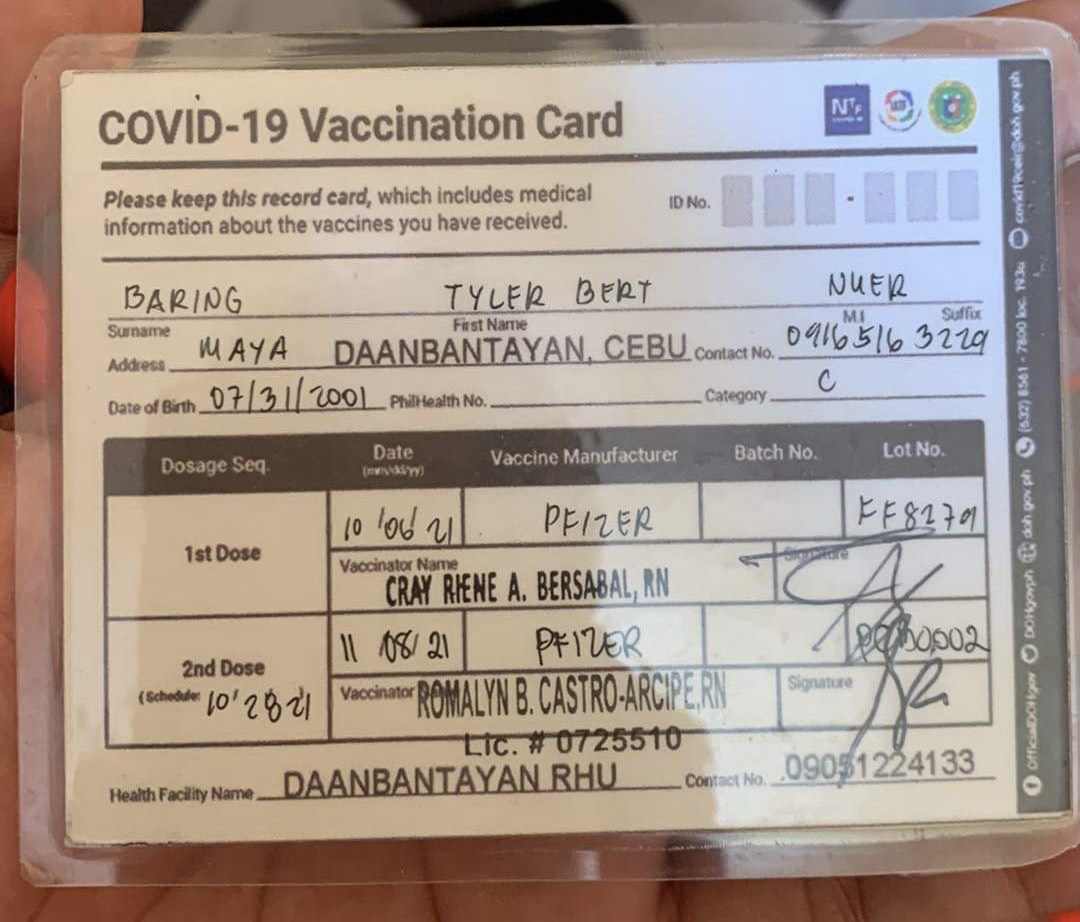 COVID-19 Vaccination Card
NTF
Please keep this record card, which includes medical
information about the vaccines you have received.
ID No. -
BARING TYLER BERT NUER
Surname First Name M.I Suffix
Address MAYA DAANBANTAYAN, CEBU Contact No. 0916516 3229
Date of Birth 07/31/2001 PhilHealth No. Category C
Dosage Seq. Date (mm/dd/yy) Vaccine Manufacturer Batch No. Lot No.
1st Dose 10/06/21 PFIZER
Vaccinator Name Signature
CRAY RIENE A. BERSABAL, RN
2nd Dose 11 08/21 PFIZER
(Schedule: 10'28'21 Vaccinator ROMALYN B. CASTRO-ARCIPE,RN Signature
Lic. # 0725510
Health Facility Name DAANBANTAYAN RHU Contact No. 09051224133
OfficialDOHgov DOHgovph doh.gov.ph (632) 8561 - 7800 loc. 1934 covid19ceir@doh.gov.ph